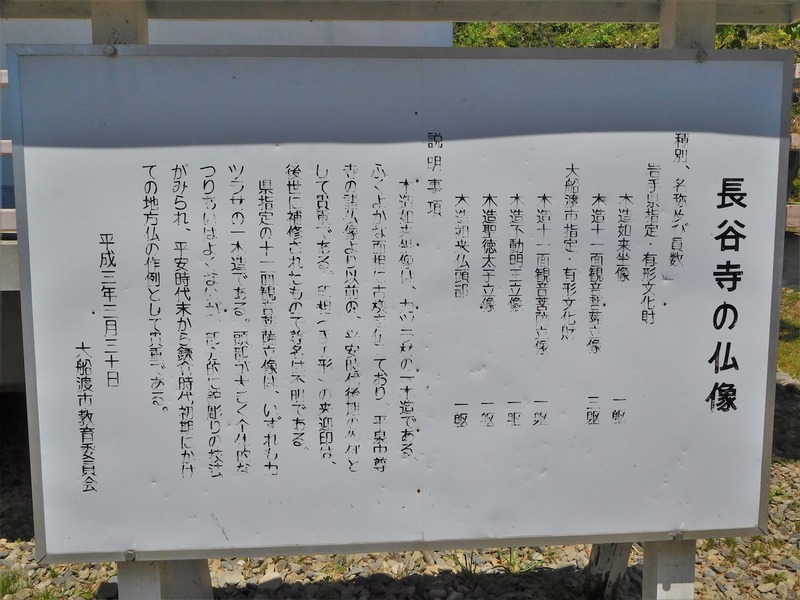 長谷寺の仏像
種別、名称及び員数
岩手県指定・有形文化財
木造如来坐像 一躯
木造十一面観音菩薩立像 三躯
大船渡市指定・有形文化財
木造十一面観音菩薩立像 一躯
木造不動明王立像 一躯
木造聖徳太子立像 一躯
木造如来仏頭部 一躯
説明事項
木造如来坐像は、カツラ材の一木造である。
ふくよかな面相に古様を伝えており、平泉中尊
寺の諸仏像より以前の、平安時代後期の
して貴重である。 来迎印は、
後世に補修されたもので尊名は不明である。
県指定の十一面観音菩薩立像は、いずれもカ
ツラ材の一木造である。頭部が大きく全体的な
つりあいはよくないが、 鉈彫りの技法
がみられ、平安時代末から鎌倉時代初期にかけ
ての地方仏の作例として貴重である。
平成三年三月三十日
大船渡市教育委員会